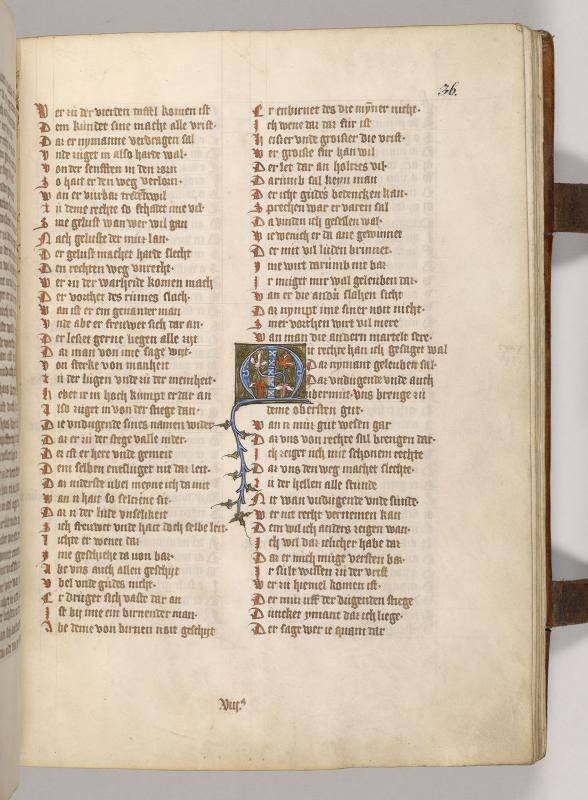 36.
W er zü der vierden taffl komen ist
D em kündet sine macht alle vrist·
D az er nymanne verdragen sal
V nde züget in also harde wal·
V on der senfften in den zorn
S o hait er den weg verlorn·
W an er vürbaz tredē wil
Z ü deme rechte so schadet ime vil·
S ine gelust wan wer wil gan
N ach geluste der müz lan·
D er gelust machet harde slecht
D en rechten weg vnrecht·
W er zü der warheide komen mach
D er vorchet des rümes slach·
W an ist er ein genanter man
V nde abe er freuwet sich dar an·
D er leset gerne liegen alle zijt
D az man von ime sage wijt·
V on sterke von manheit
Z ü der lügen vnde zü der meinheit·
H ebet ir in hoch kümpt er dar an
A lso züget in von der stiege dan·
D ie vndügende sines namen wider
D az er zü der stege valle nider·
D er ist er here vnde gemeit
D em selben entfliüget nit daz leit·
D az niderste übel meyne ich da mit
W an it hait so seltene sit·
D az zü der lüde vnselikeit
S ich freuwet vnde hait doch selbe leit·
I chte er wenet daz
I me geschiehe da von baz·
A be vns auch allen geschijt
V bel vnde güdes nicht·
E r drüget sich vaste dar an
I st bij ime ein birnender man·
A be deme von birnen noit geschijt
E r enbirnet des die myner nicht·
I ch wene daz daz für ist
H eisser vnde groisser die vrist·
W er groisse für han wil
D er lez dar an holtzes vil·
D arümb sal keyn man
D er icht güdes bedencken kan·
S prechen war er varen sal
D a vinden ich gesellen wal·
W ie wenich er da ane gewinnet
D er mit vil lüden brinnet·
I me wirt darümb nit baz
I r müget mir wal geleüben daz·
W an er die andern slahen sicht
D az nympt ime siner noit nicht·
I mer vorchten wirt vil mere
W an man die andern martelt sere·
Mit rechte han ich gesaget wal
Daz nymant geleüben sal·
Daz vndügende vnde auch
übermüt· vns brenge zü
deme obersten güt·
W an it müz güt wesen gar
D az vns von rechte sül brengen dar·
I ch zeiger üch mit schonem rechte
D az vns den weg machet slechte·
Z ü der hellen alle stünde
N it wan vndügende vnde sünde·
W er nit recht vernemen kan
D em wil ich anders zeigen wan·
I ch wil daz ielicher habe daz
D az er mich müge versten baz·
I r sült wissen zü der vrist
W er zü hiemel komen ist·
D er müz uff der dügenden stiege
D üncket ymant daz ich liege·
D er sage wer ie quam dar
Viij.ᵃ